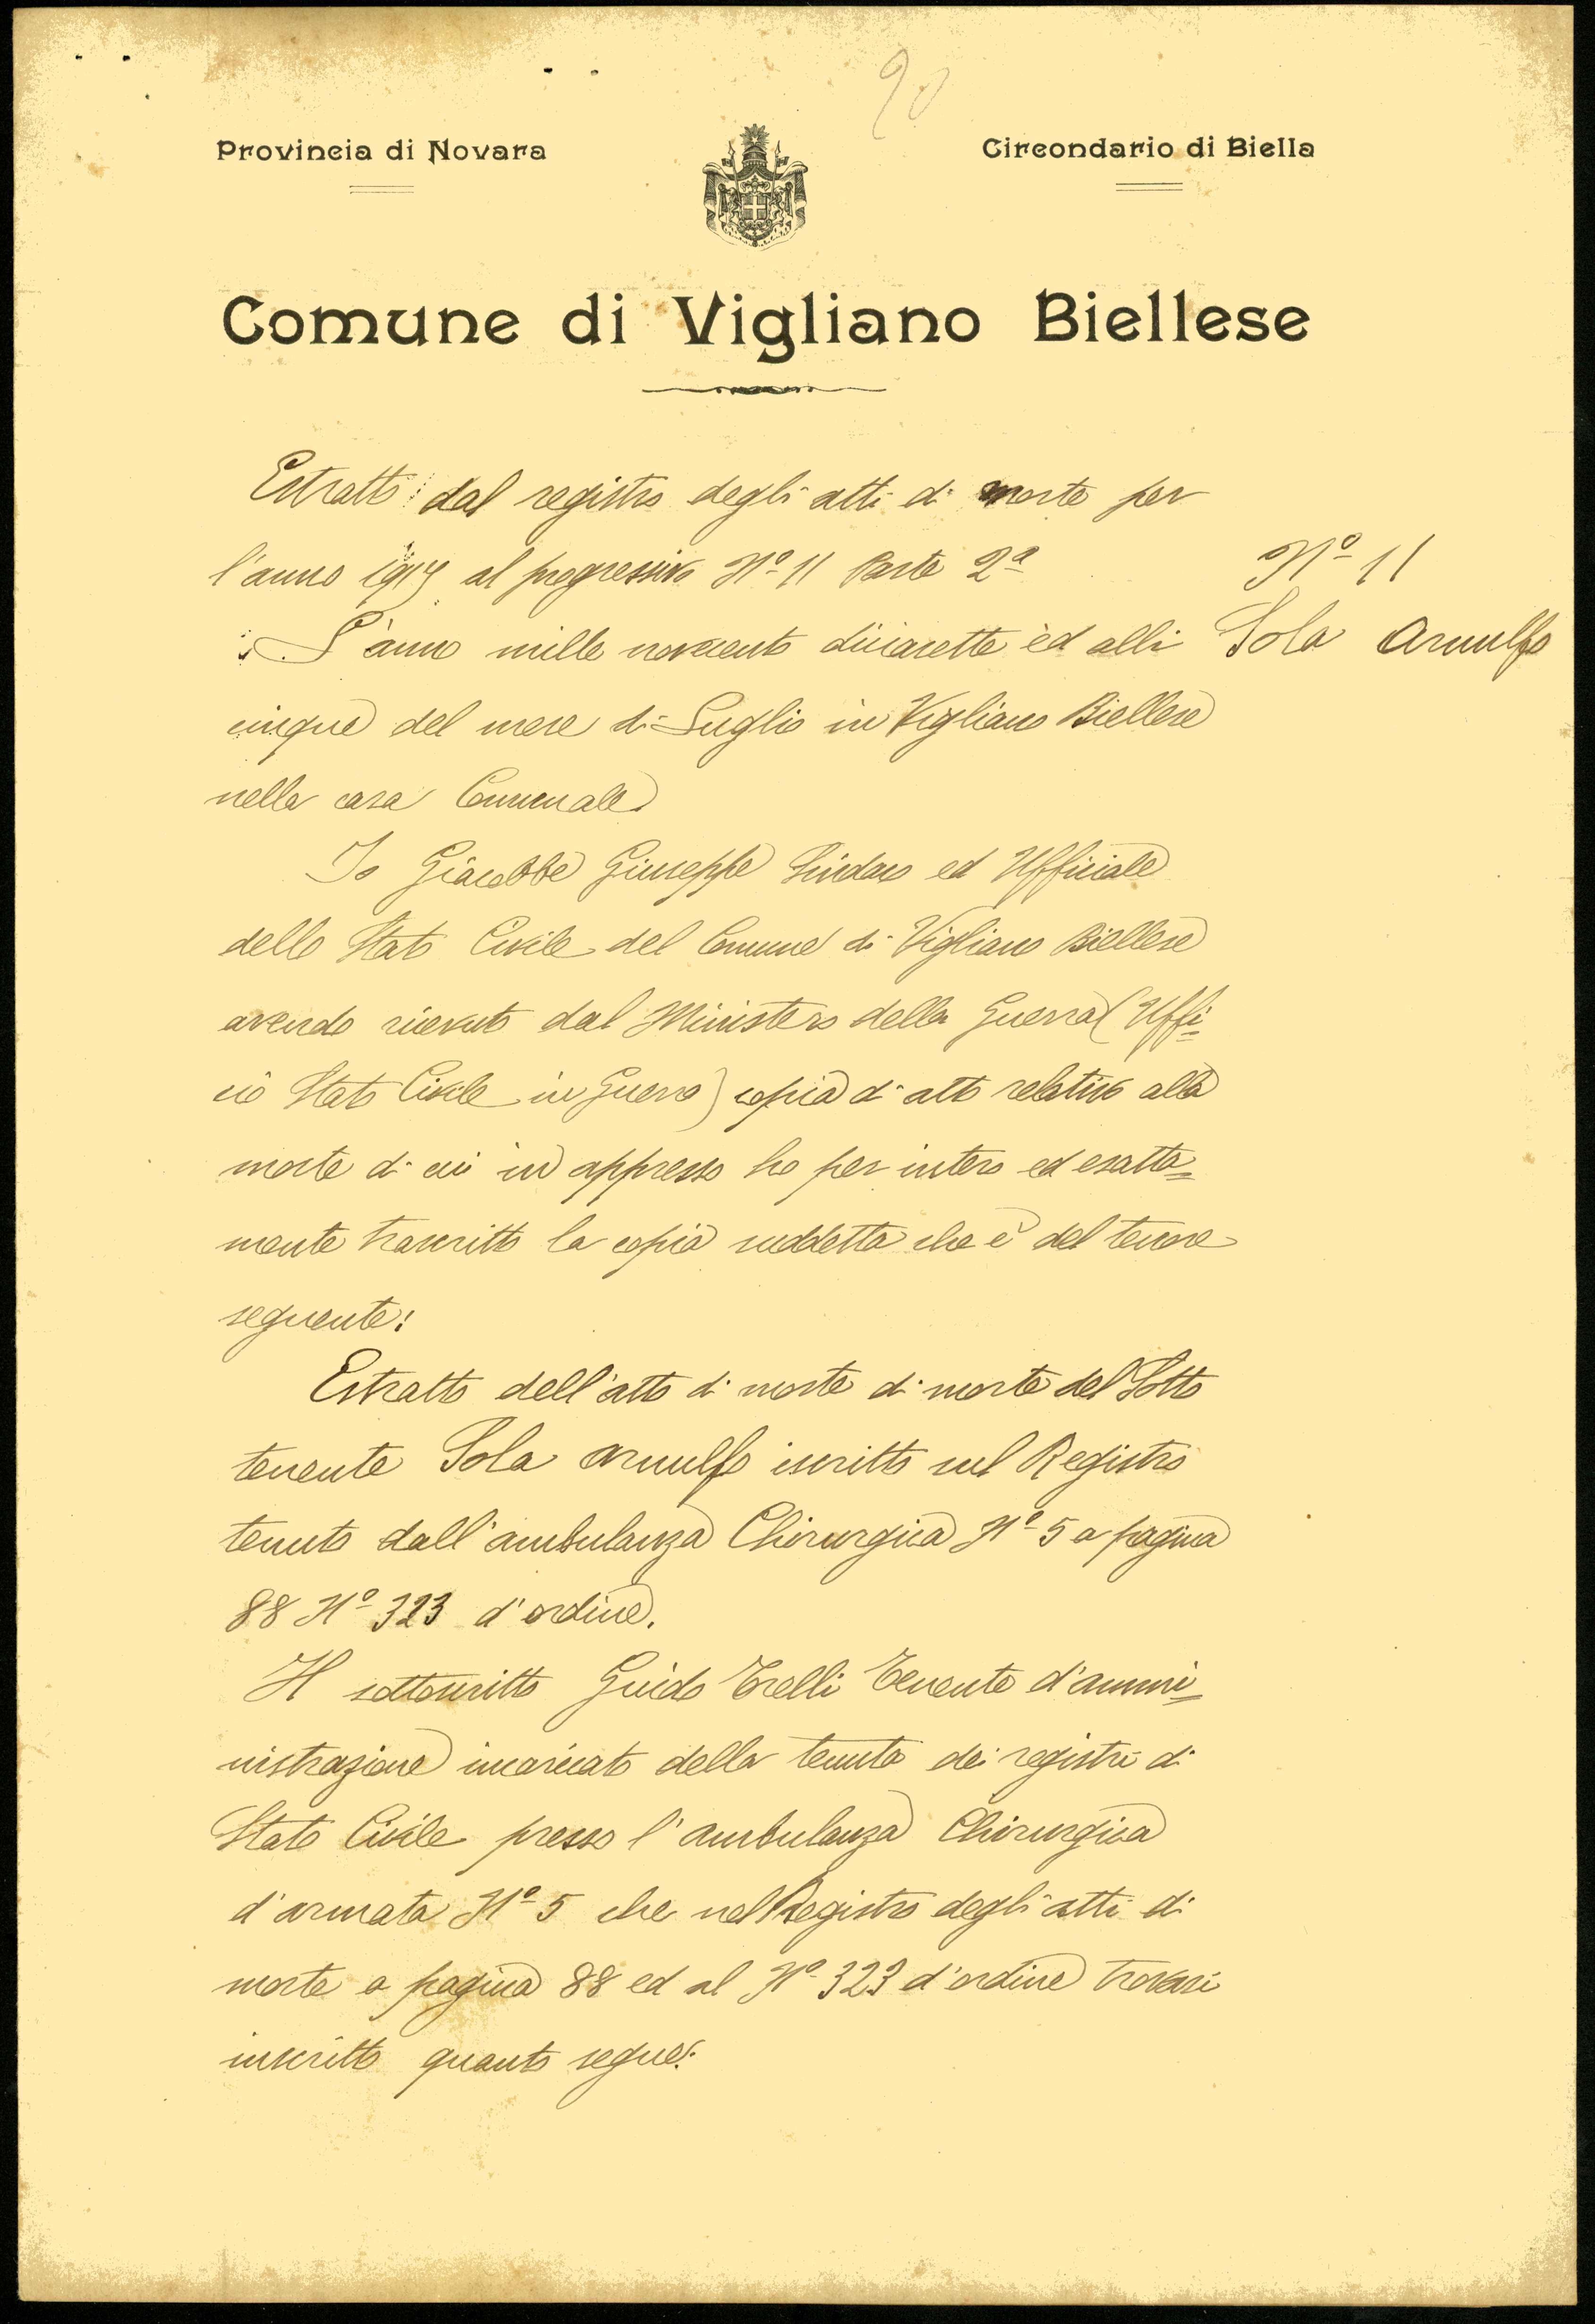 90
Provincia di Novara
Circondario di Biella
Comune di Vigliano Biellese
Estratto dal registro degli atti di morte per
l'anno 1917 al progressivo Nº 11 Parte 2ª
Nº 11
L'anno mille novecento diciasette ed alli
Sola Arnulfo
cinque del mese di Luglio in Vigliano Biellese
nella casa Comunale
Io Giacobbe Giuseppe Sindaco ed Ufficiale
dello Stato Civile del Comune di Vigliano Biellese
avendo ricevuto dal Ministero della Guerra (Uffi=
cio Stato Civile in Guerra) copia di atto relativo alla
morte di cui in appresso ho per intero ed esatta=
mente trascritto la copia suddetta che è del tenore
seguente:
Estratto dell'atto di morte di morte del Sotto
tenente Sola Arnulfo iscritto sul Registro
tenuto dall'ambulanza Chirurgica Nº 5 a pagina
88 Nº 323 d'ordine.
Il sottoscritto Guido Erelli Tenente d'ammi=
nistrazione incaricato della tenuta dei registri di
Stato Civile presso l'ambulanza Chirurgica
d'armata Nº 5 che nel Registro degli atti di
morte a pagina 88 ed al Nº 323 d'ordine trovasi
inscritto quanto segue: